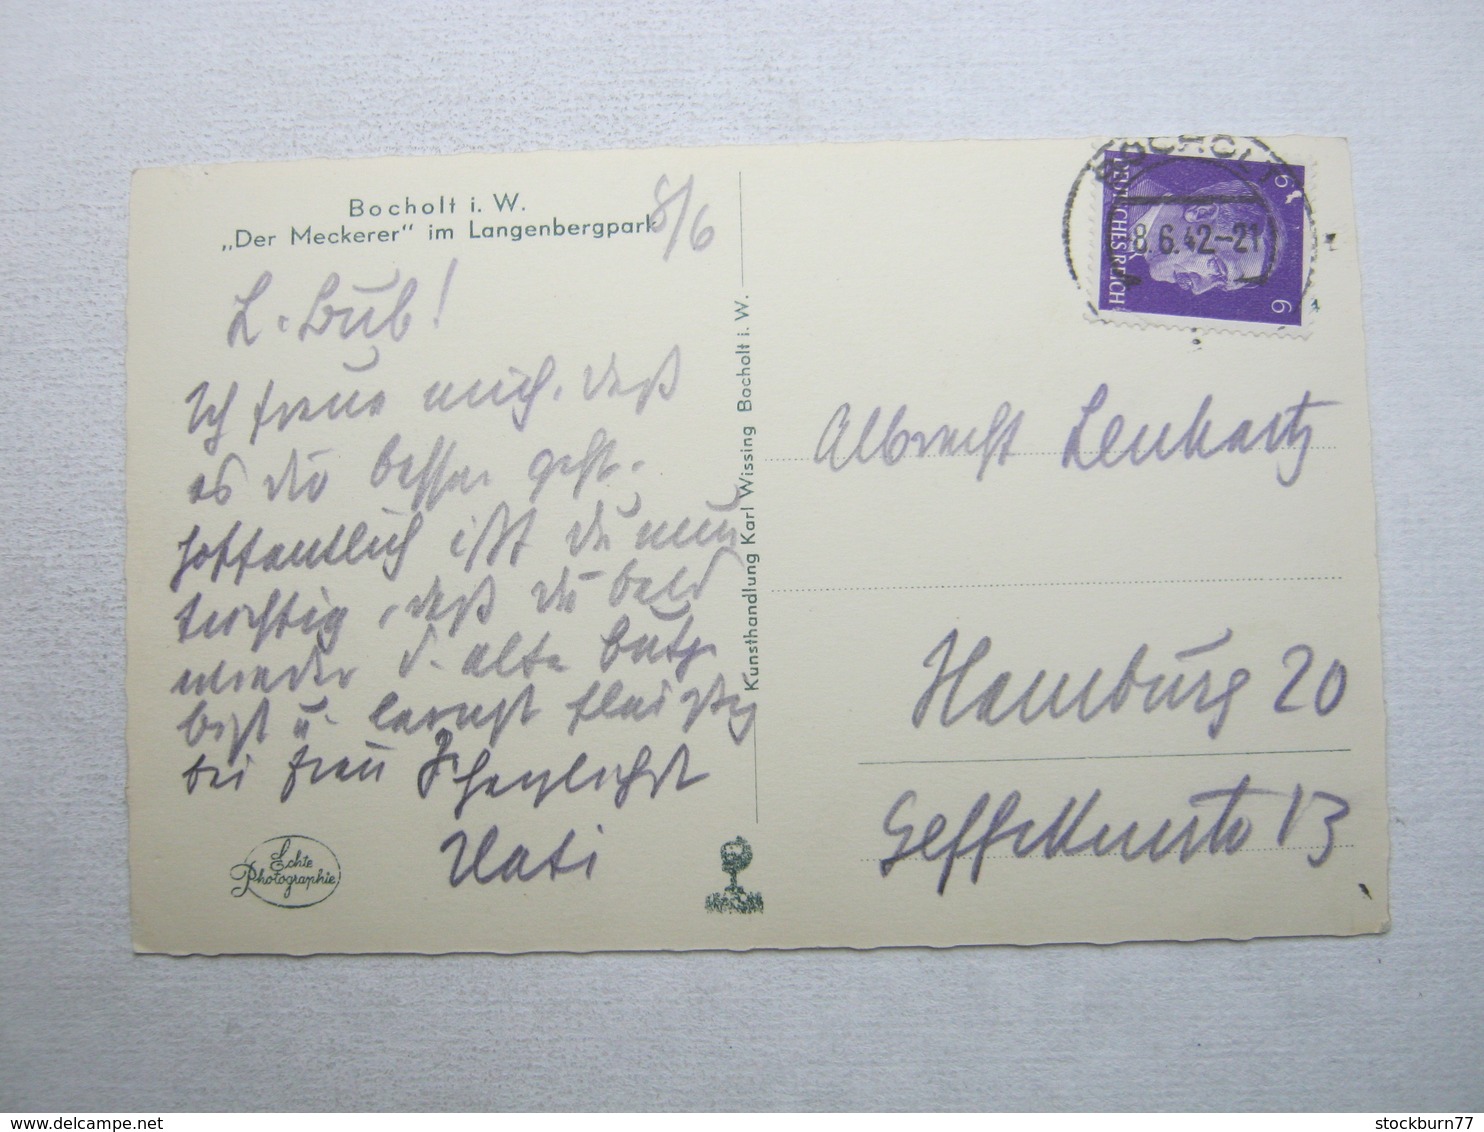 Bocholt i. W.
„Der Meckerer" im Langenbergpark
8/6
L. Bub!
Ich freue mich, daß
es dir besser geht.
Hoffentlich ißt du nun
tüchtig, daß du bald
wieder d. alte
bist u. lernst fleißig
bei Frau Herzlichst
Vati
Echte
Photographie
Kunsthandlung Karl Wissing Bocholt i. W.
BOCHOLT
8.6.42-21
DEUTSCHES REICH
6
6
Albrecht Lenhartz
Hamburg 20
Geffckenstr 13
delcampe.net
stockburn77